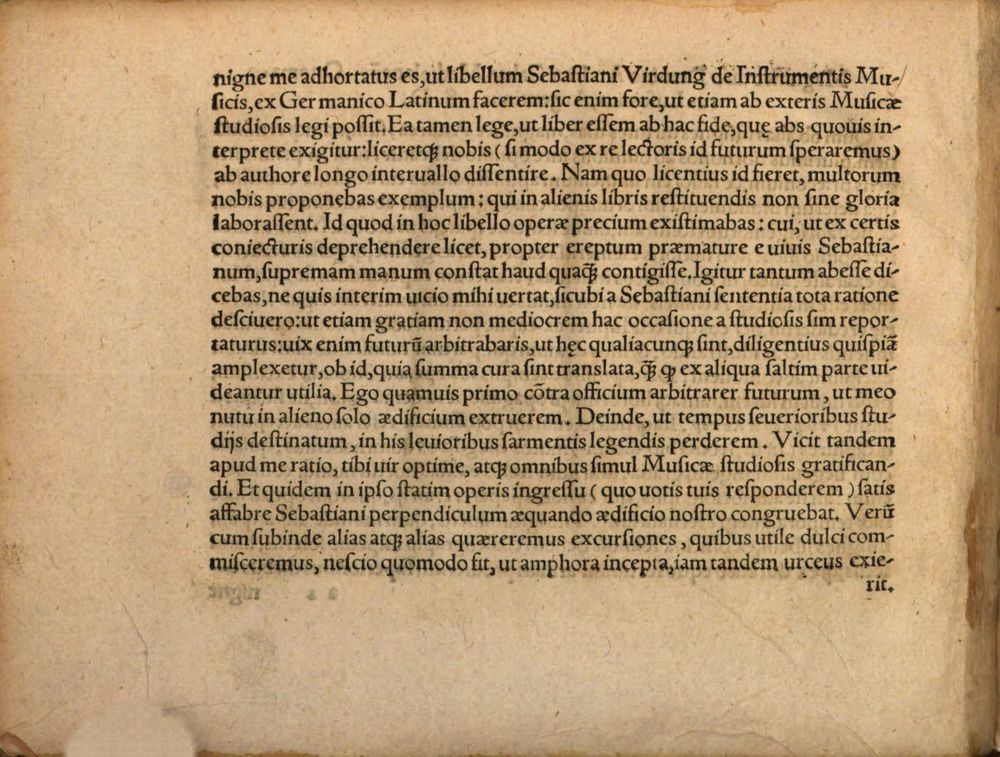 nigne me adhortatus es,ut libellum Sebastiani Virdung de Instrumentis Mu-
sicis,ex Germanico Latinum facerem:sic enim fore,ut etiam ab exteris Musicæ
studiosis legi possit.Ea tamen lege,ut liber essem ab hac fide,quę abs quouis in-
terprete exigitur:liceretqꝫ nobis (si modo ex re lectoris id futurum speraremus)
ab authore longo interuallo dissentire. Nam quo licentius id fieret, multorum
nobis proponebas exemplum: qui in alienis libris restituendis non sine gloria
laborassent. Id quod in hoc libello operæ precium existimabas: cui, ut ex certis
coniecturis deprehendere licet, propter ereptum præmature e uiuis Sebastia-
num,supremam manum constat haud quaq̃ꝫ contigisse.Igitur tantum abesse di-
cebas,ne quis interim uicio mihi uertat,sicubi a Sebastiani sententia tota ratione
desciuero:ut etiam gratiam non mediocrem hac occasione a studiosis sim repor-
taturus:uix enim futurũ arbitrabaris,ut hęc qualiacunqꝫ sint,diligentius quispiã
amplexetur,ob id,quia summa cura sint translata,q̃ꝫ ꝙ ex aliqua saltim parte ui-
deantur utilia. Ego quamuis primo cõtra officium arbitrarer futurum, ut meo
nutu in alieno solo ædificium extruerem. Deinde, ut tempus seuerioribus stu-
dijs destinatum, in his leuioribus sarmentis legendis perderem. Vicit tandem
apud me ratio, tibi uir optime, atqꝫ omnibus simul Musicæ studiosis gratifican-
di. Et quidem in ipso statim operis ingressu (quo uotis tuis responderem) satis
affabre Sebastiani perpendiculum æquando ædificio nostro congruebat. Verũ
cum subinde alias atqꝫ alias quæreremus excursiones, quibus utile dulci com-
misceremus, nescio quomodo fit, ut amphora incepta,iam tandem urceus exie-
rit.